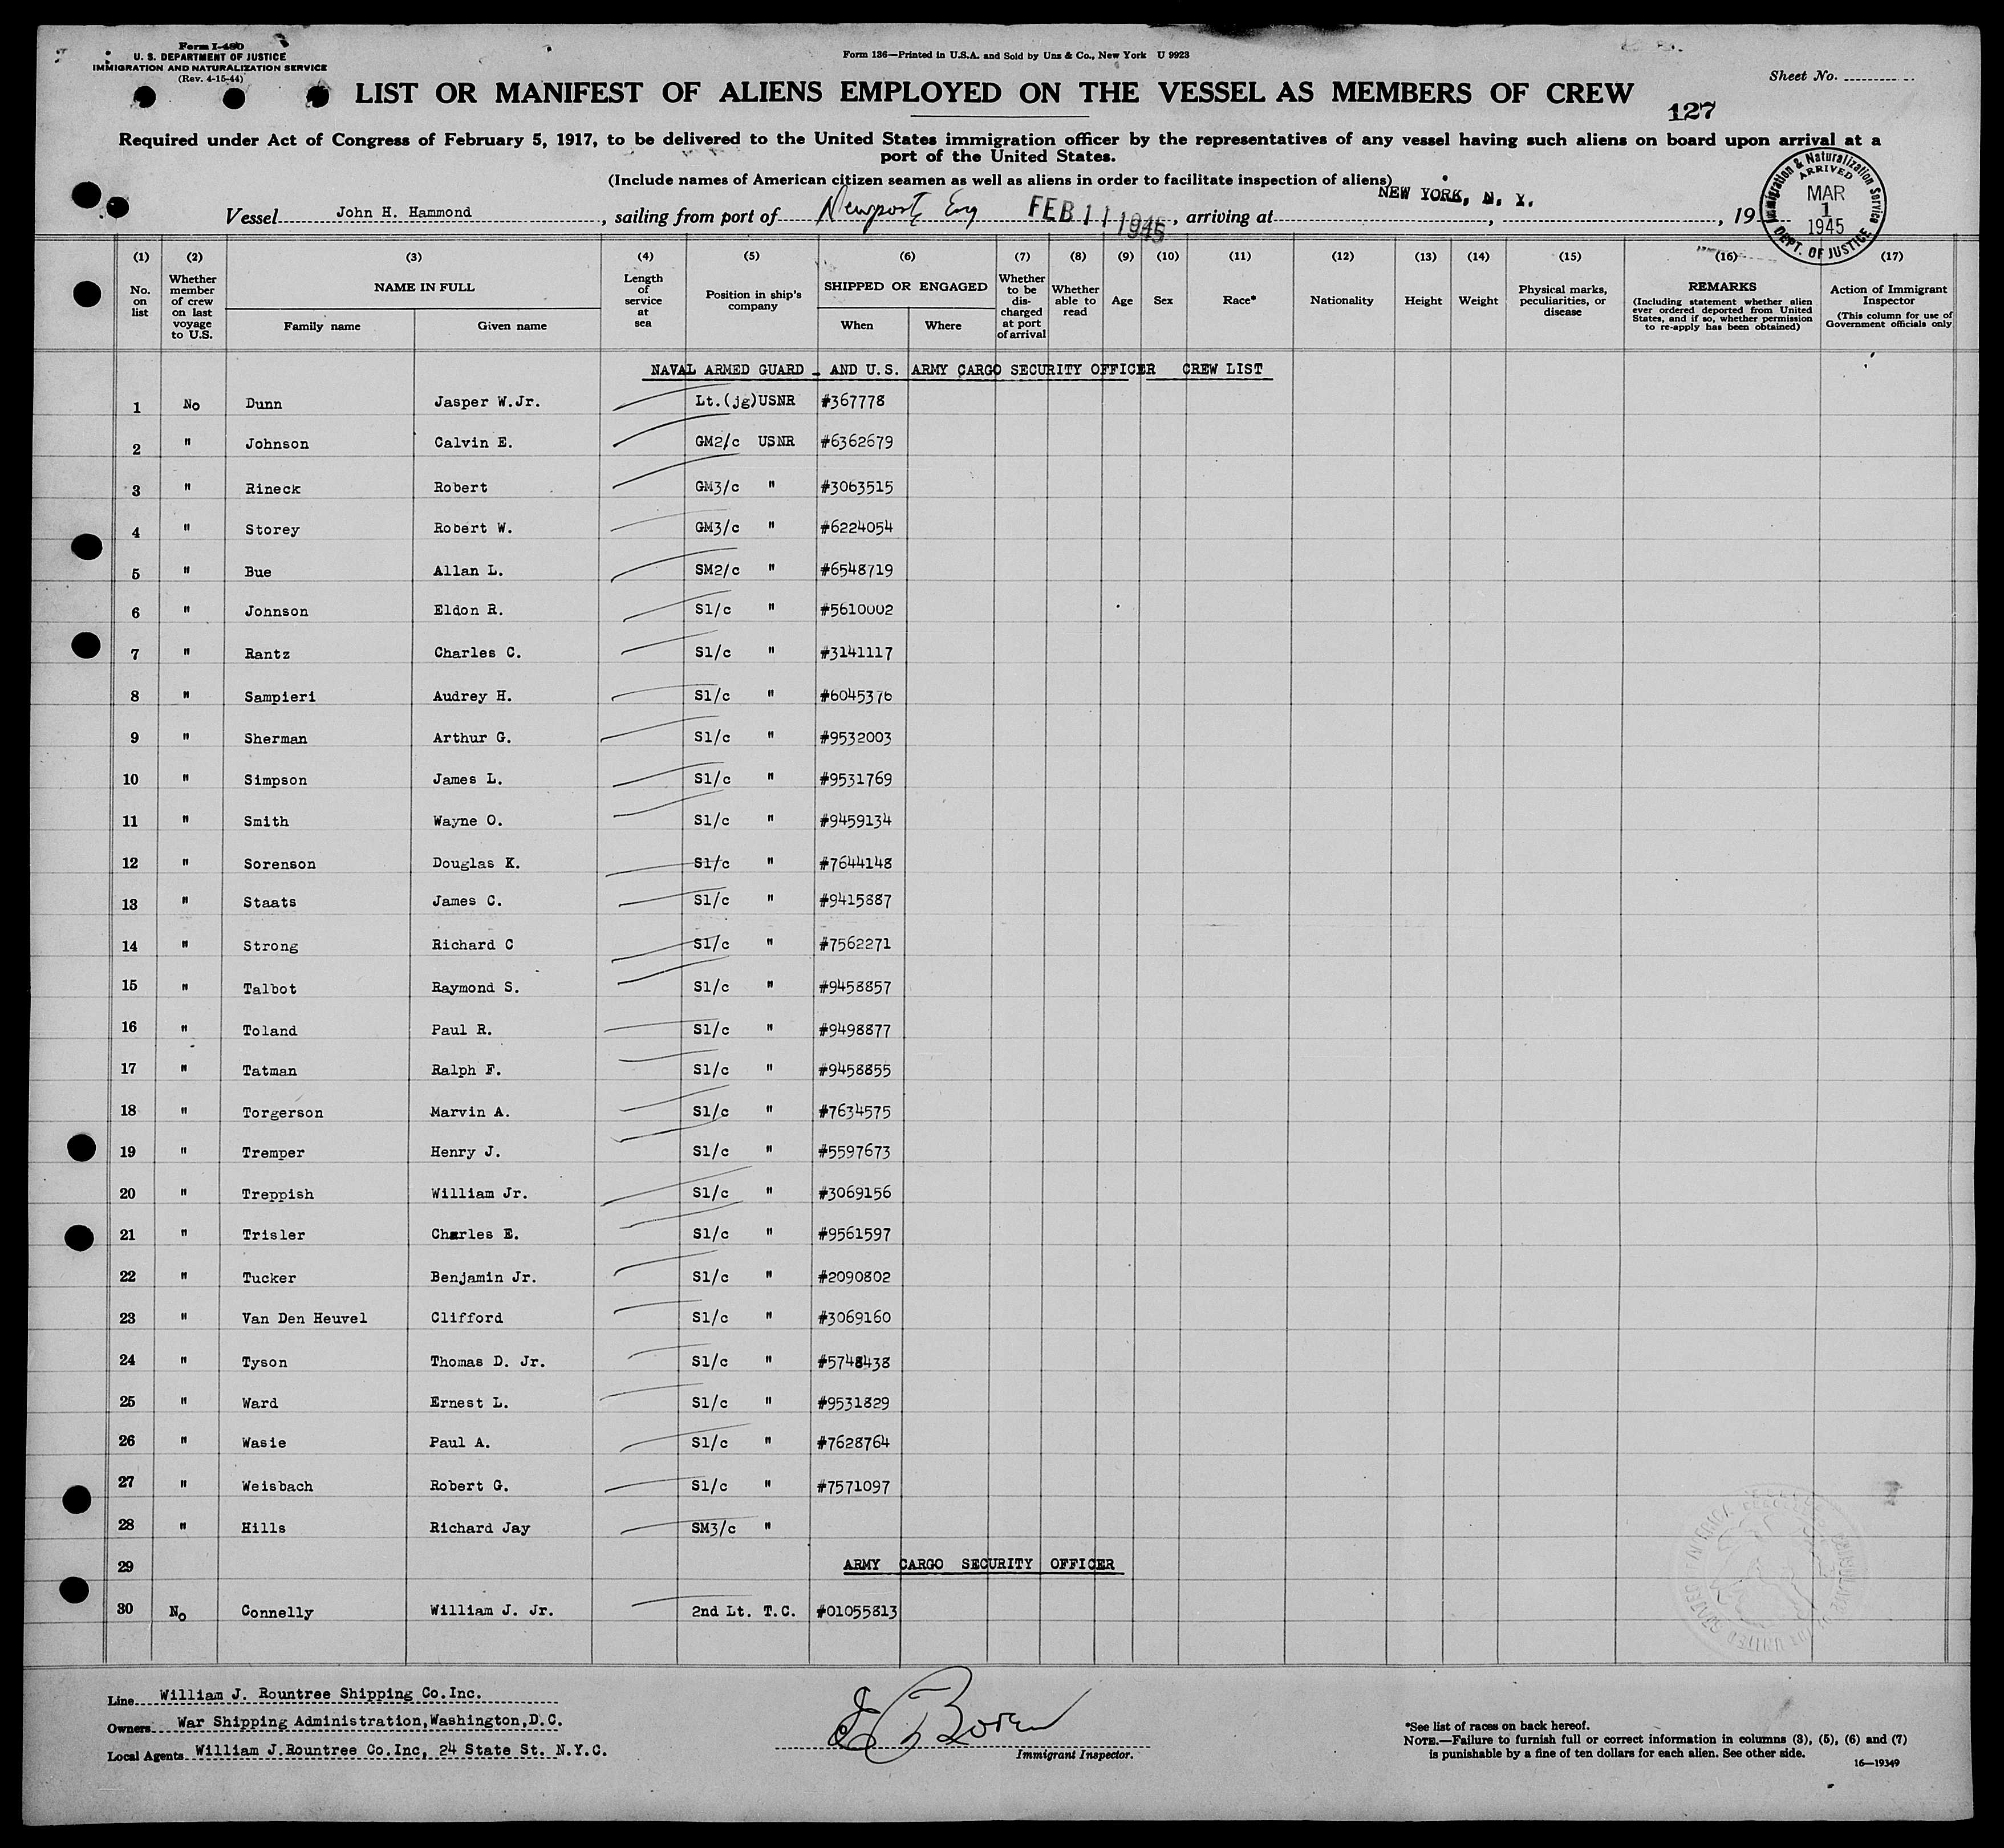 Form I-480
U. S. DEPARTMENT OF JUSTICE
IMMIGRATION AND NATURALIZATION SERVICE
(Rev. 4-15-44)
Form 136—Printed in U.S.A. and Sold by Unz & Co., New York U 9923
Sheet No.
LIST OR MANIFEST OF ALIENS EMPLOYED ON THE VESSEL AS MEMBERS OF CREW
127
Required under Act of Congress of February 5, 1917, to be delivered to the United States immigration officer by the representatives of any vessel having such aliens on board upon arrival at a
port of the United States.
(Include names of American citizen seamen as well as aliens in order to facilitate inspection of aliens)
Vessel John H. Hammond, sailing from port of Newport Eng FEB 11 1945, arriving at NEW YORK, N. Y., 19
Immigration & Naturalization Service
ARRIVED
MAR
1
1945
DEPT. OF JUSTICE
(1) (2) (3) (4) (5) (6) (7) (8) (9) (10) (11) (12) (13) (14) (15) (16) (17)
No. on list
Whether member of crew on last voyage to U.S.
NAME IN FULL
Family name Given name
Length of service at sea
Position in ship's company
SHIPPED OR ENGAGED
When Where
Whether to be discharged at port of arrival
Whether able to read
Age
Sex
Race*
Nationality
Height
Weight
Physical marks, peculiarities, or disease
REMARKS
(Including statement whether alien ever ordered deported from United States, and if so, whether permission to re-apply has been obtained)
Action of Immigrant Inspector
(This column for use of Government officials only
NAVAL ARMED GUARD - AND U.S. ARMY CARGO SECURITY OFFICER CREW LIST
1 No Dunn Jasper W.Jr. Lt.(jg)USNR #367778
2 " Johnson Calvin E. GM2/c USNR #6362679
3 " Rineck Robert GM3/c " #3063515
4 " Storey Robert W. GM3/c " #6224054
5 " Bue Allan L. SM2/c " #6548719
6 " Johnson Eldon R. S1/c " #5610002
7 " Rantz Charles C. S1/c " #3141117
8 " Sampieri Audrey H. S1/c " #6045376
9 " Sherman Arthur G. S1/c " #9532003
10 " Simpson James L. S1/c " #9531769
11 " Smith Wayne O. S1/c " #9459134
12 " Sorenson Douglas K. S1/c " #7644148
13 " Staats James C. S1/c " #9415887
14 " Strong Richard C S1/c " #7562271
15 " Talbot Raymond S. S1/c " #9458857
16 " Toland Paul R. S1/c " #9498877
17 " Tatman Ralph F. S1/c " #9458855
18 " Torgerson Marvin A. S1/c " #7634575
19 " Tremper Henry J. S1/c " #5597673
20 " Treppish William Jr. S1/c " #3069156
21 " Trisler Charles E. S1/c " #9561597
22 " Tucker Benjamin Jr. S1/c " #2090802
23 " Van Den Heuvel Clifford S1/c " #3069160
24 " Tyson Thomas D. Jr. S1/c " #5748438
25 " Ward Ernest L. S1/c " #9531829
26 " Wasie Paul A. S1/c " #7628764
27 " Weisbach Robert G. S1/c " #7571097
28 " Hills Richard Jay SM3/c "
29 ARMY CARGO SECURITY OFFICER
30 No Connelly William J. Jr. 2nd Lt. T.C. #01055813
Line William J. Rountree Shipping Co.Inc.
Owners War Shipping Administration,Washington,D.C.
Local Agents William J.Rountree Co.Inc, 24 State St. N.Y.C.
Immigrant Inspector.
*See list of races on back hereof.
NOTE.—Failure to furnish full or correct information in columns (3), (5), (6) and (7)
is punishable by a fine of ten dollars for each alien. See other side.
16—19349